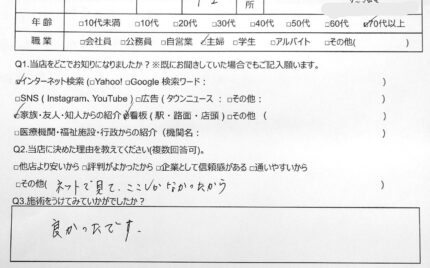 所
年 齢 □10代未満 □10代 □20代 □30代 □40代 □50代 □60代 ☑70代以上
職 業 □会社員 □公務員 □自営業 ☑主婦 □学生 □アルバイト □その他( )
Q1.当店をどこでお知りになりましたか？※既にお聞きしていた場合でもご記入願います。
☑インターネット検索(□Yahoo! □Google 検索ワード： )
□SNS ( Instagram、YouTube ) □広告 ( タウンニュース ： □その他： )
☑家族・友人・知人からの紹介 ☑看板 ( 駅・路面・店頭 ) □その他 ( )
□医療機関・福祉施設・行政からの紹介 ( 機関名： )
Q2.当店に決めた理由を教えてください(複数回答可)。
□他店より安いから □評判がよかったから □企業として信頼感がある □通いやすいから
☑その他( ネットで見て、ここしかなかったから )
Q3.施術をうけてみていかがでしたか？
良かったです。